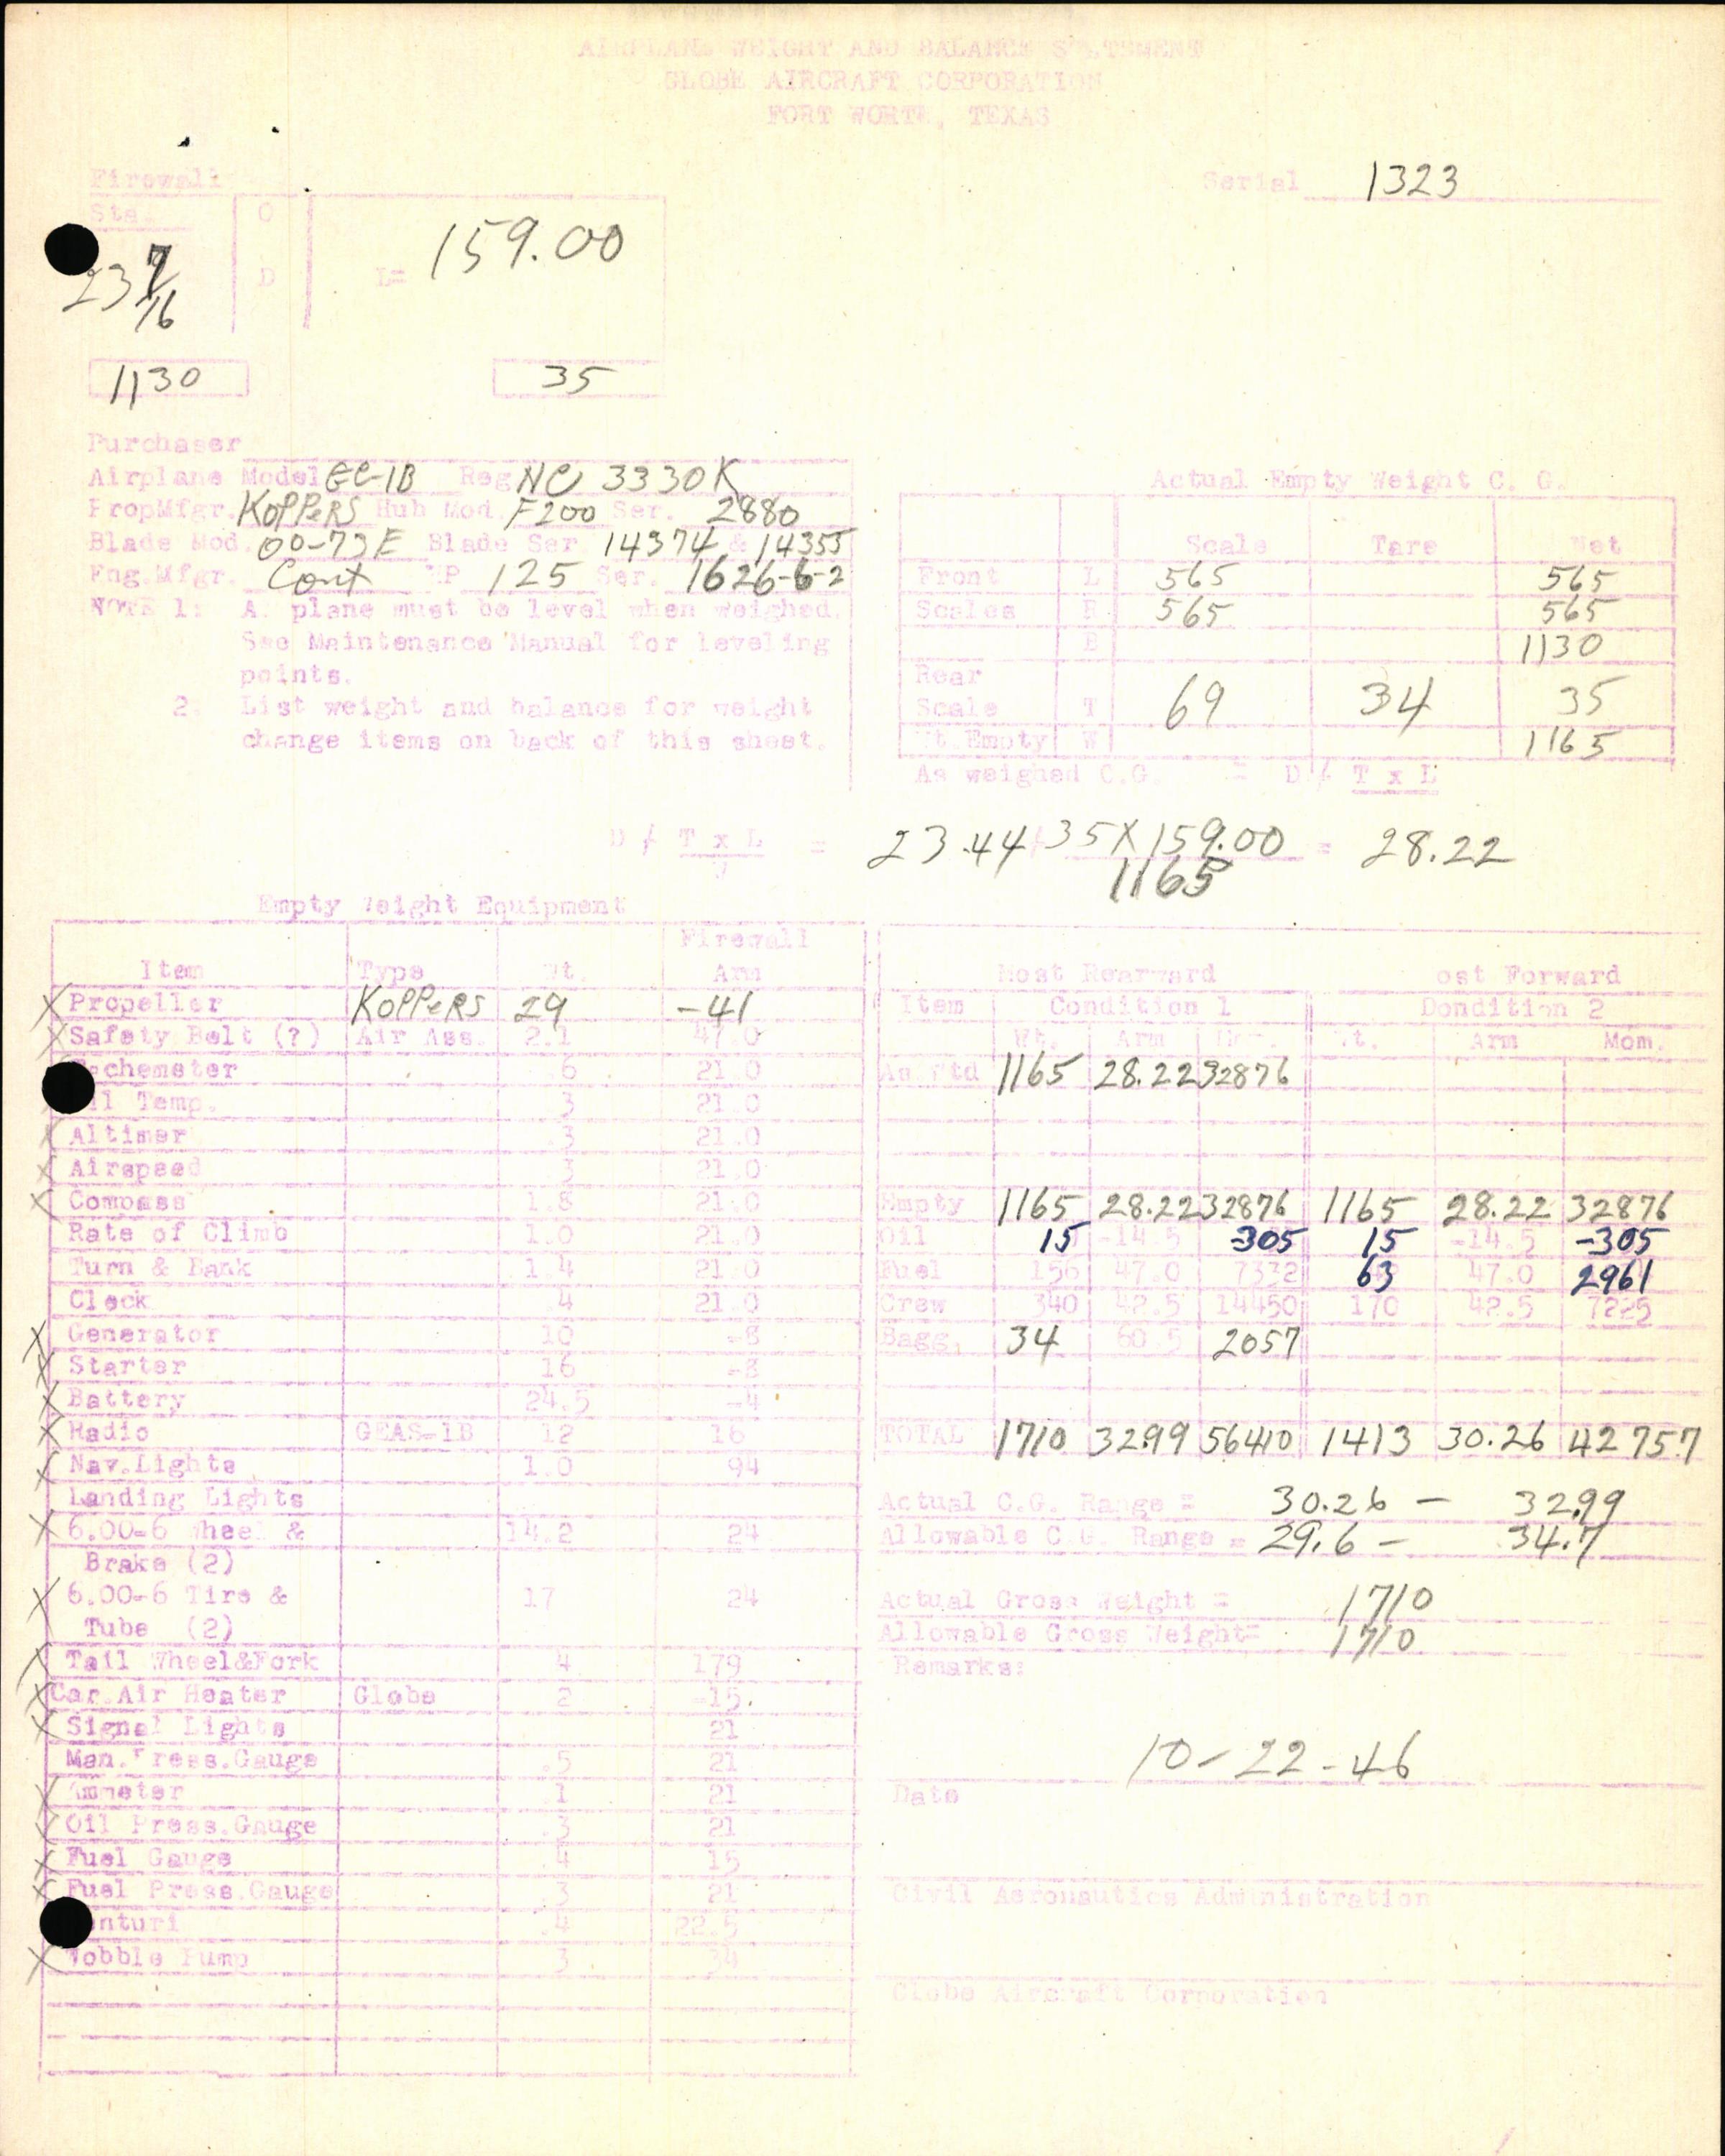 AIRPLANE WEIGHT AND BALANCE STATEMENT
GLOBE AIRCRAFT CORPORATION
FORT WORTH, TEXAS
Serial 1323
Firewall
Sta. O
23 7/16 D L= 159.00
1130 35
Purchaser
Airplane Model GC-1B Reg NC 3330K
PropMfgr. KOPPERS Hub Mod. F200 Ser. 2880
Blade Mod. 00-73E Blade Ser 14374 & 14355
Eng.Mfgr. Cont HP 125 Ser. 1626-6-2
NOTE 1: A. plane must be level when weighed.
See Maintenance Manual for leveling
points.
2. List weight and balance for weight
change items on back of this sheet.
Actual Empty Weight C. G.
Scale Tare Net
Front L 565 565
Scales R 565 565
E 1130
Rear
Scale T 69 34 35
Wt.Empty W 1165
As weighed C.G. = D / T x L
D / T x L = 23.44 / 35 X 159.00 = 28.22
W 1165
Empty Weight Equipment
Item Type Wt. Firewall Arm
X Propeller KOPPERS 29 -41
X Safety Belt (?) Air Ass. 2.1 47.0
Techometer .6 21.0
Oil Temp. .3 21.0
X Altimer .3 21.0
X Airspeed .3 21.0
X Compass 1.8 21.0
Rate of Climb 1.0 21.0
Turn & Bank 1.4 21.0
Clock .4 21.0
X Generator 10 -8
X Starter 16 -8
X Battery 24.5 -4
X Radio GEAS-1B 12 16
X Nav.Lights 1.0 94
Landing Lights
X 6.00-6 Wheel & 14.2 24
Brake (2)
X 6.00-6 Tire & 17 24
Tube (2)
X Tail Wheel&Fork 4 179
X Car.Air Heater Globe 2 -15
X Signal Lights 21
Man.Press.Gauge .5 21
X Ammeter .1 21
X Oil Press.Gauge .3 21
X Fuel Gauge .4 15
X Fuel Press.Gauge .3 21
Venturi .4 22.5
X Wobble Pump 3 34
Most Rearward ost Forward
Item Condition 1 Dondition 2
Wt. Arm Mom. Wt. Arm Mom.
As Wtd 1165 28.22 32876
Empty 1165 28.22 32876 1165 28.22 32876
Oil 15 -14.5 -305 15 -14.5 -305
Fuel 156 47.0 7332 63 47.0 2961
Crew 340 42.5 14450 170 42.5 7225
Bagg. 34 60.5 2057
TOTAL 1710 32.99 56410 1413 30.26 42757
Actual C.G. Range = 30.26 - 32.99
Allowable C.G. Range = 29.6 - 34.7
Actual Gross Weight = 1710
Allowable Gross Weight= 1710
Remarks:
10-22-46
Date
Civil Aeronautics Administration
Globe Aircraft Corporation